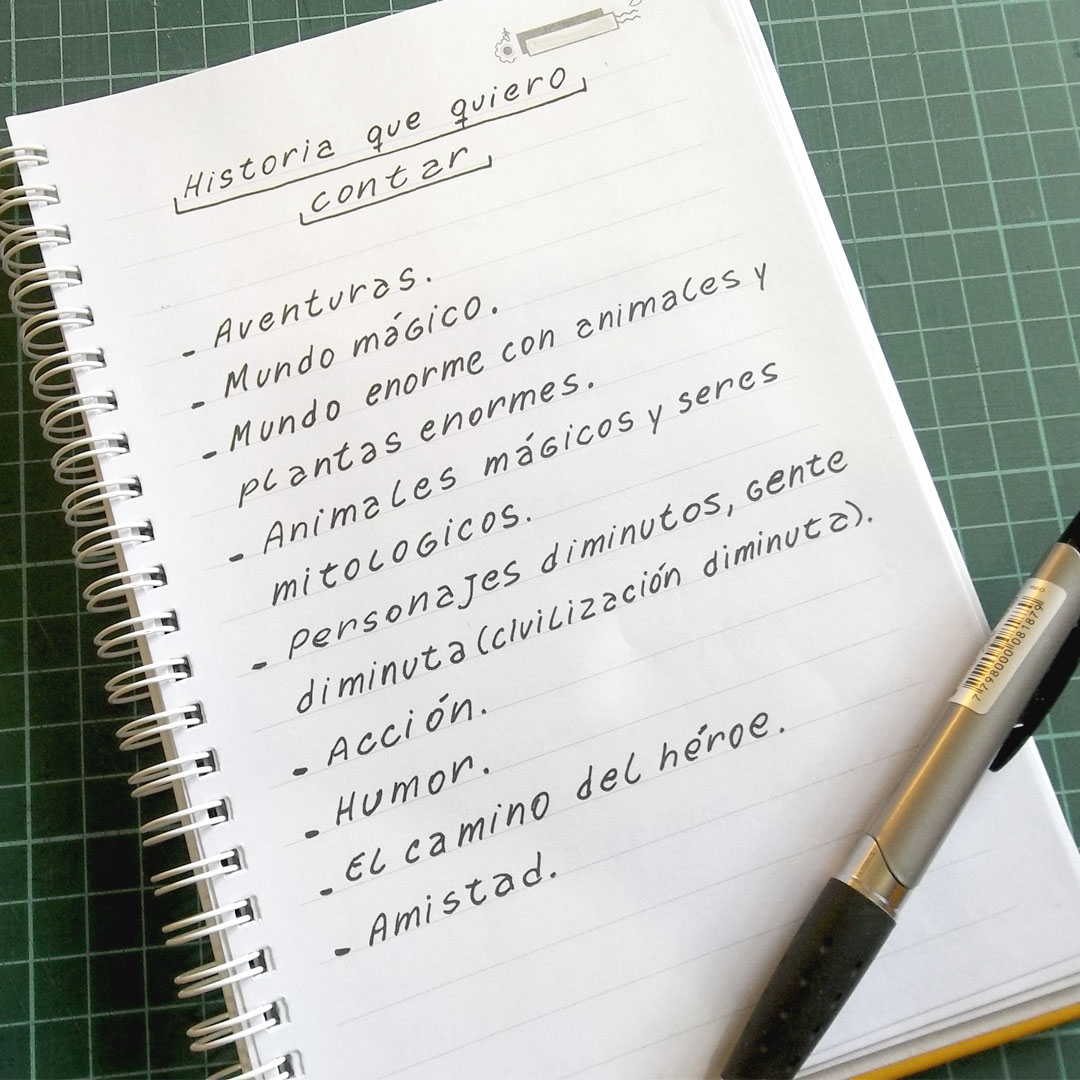 Historia que quiero
contar
- Aventuras.
- Mundo mágico.
- Mundo enorme con animales y
plantas enormes.
- Animales mágicos y seres
mitologicos.
- Personajes diminutos, gente
diminuta (civilización diminuta).
- Acción.
- Humor.
- El camino del héroe.
- Amistad.
7798000081879